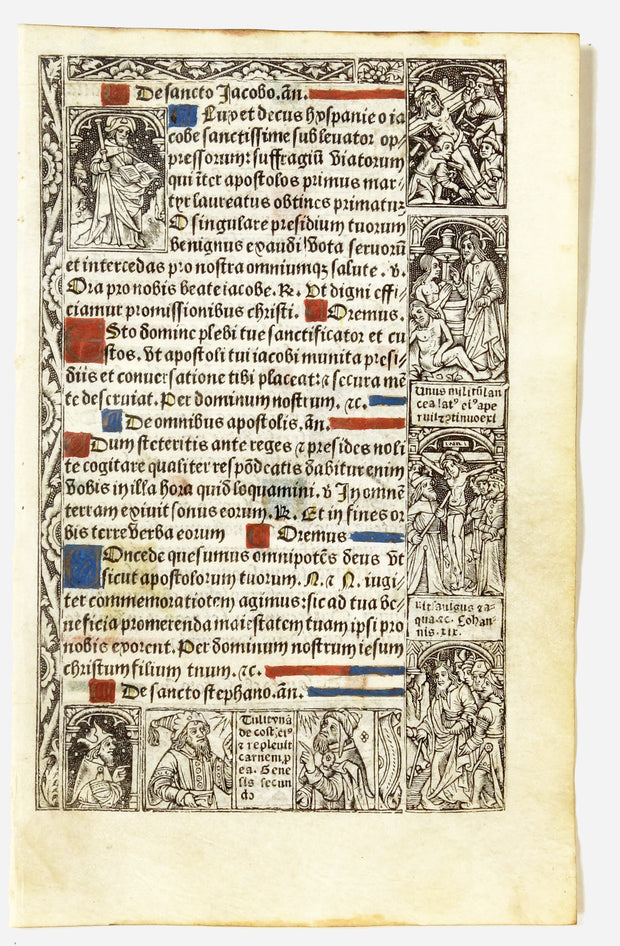 De sancto Jacobo. añ.
O Lux et decus hyspanie o ia
cobe sanctissime subleuator op⸗
pressorum: suffragiū viatorum
qui īter apostolos primus mar⸗
tyr laureatus obtines primatuꝫ
O singulare presidium tuorum
benignus exaudi vota seruorū
et intercedas pro nostra omniumqꝫ salute. v.
Ora pro nobis beate iacobe. R. Ut digni effi⸗
ciamur promissionibus christi. Oremus.
Esto domine plebi tue sanctificator et cu
stos. vt apostoli tui iacobi munita presi⸗
diis et conuersatione tibi placeat: ⁊ secura mē
te deseruiat. Per dominum nostrum. ⁊c.
De omnibus apostolis. añ.
Dum steteritis ante reges ⁊ presides noli
te cogitare qualiter respōdeatis dabitur enim
vobis in illa hora quid loquamini. v In omnē
terram exiuit sonus eorum. R. Et in fines or
bis terre verba eorum Oremus
Concede quesumus omnipotēs deus vt
sicut apostolorum tuorum. N. ⁊ N. iugi
ter commemorationem agimus: sic ad tua be⸗
neficia promerenda maiestatem tuam ipsi pro
nobis exorent. Per dominum nostrum iesum
christum filium tuum. ⁊c.
De sancto stephano. añ.
Unus militū lan
cea latꝰ eiꝰ ape
ruit ⁊ ƥtinuo exi
INRI
uit sanguis ⁊ a⸗
qua ⁊c. Johan⸗
nis. xix.
Tulit vnā
de cost. eiꝰ
⁊ repleuit
carnem p
ea. Gene
sis secun
do